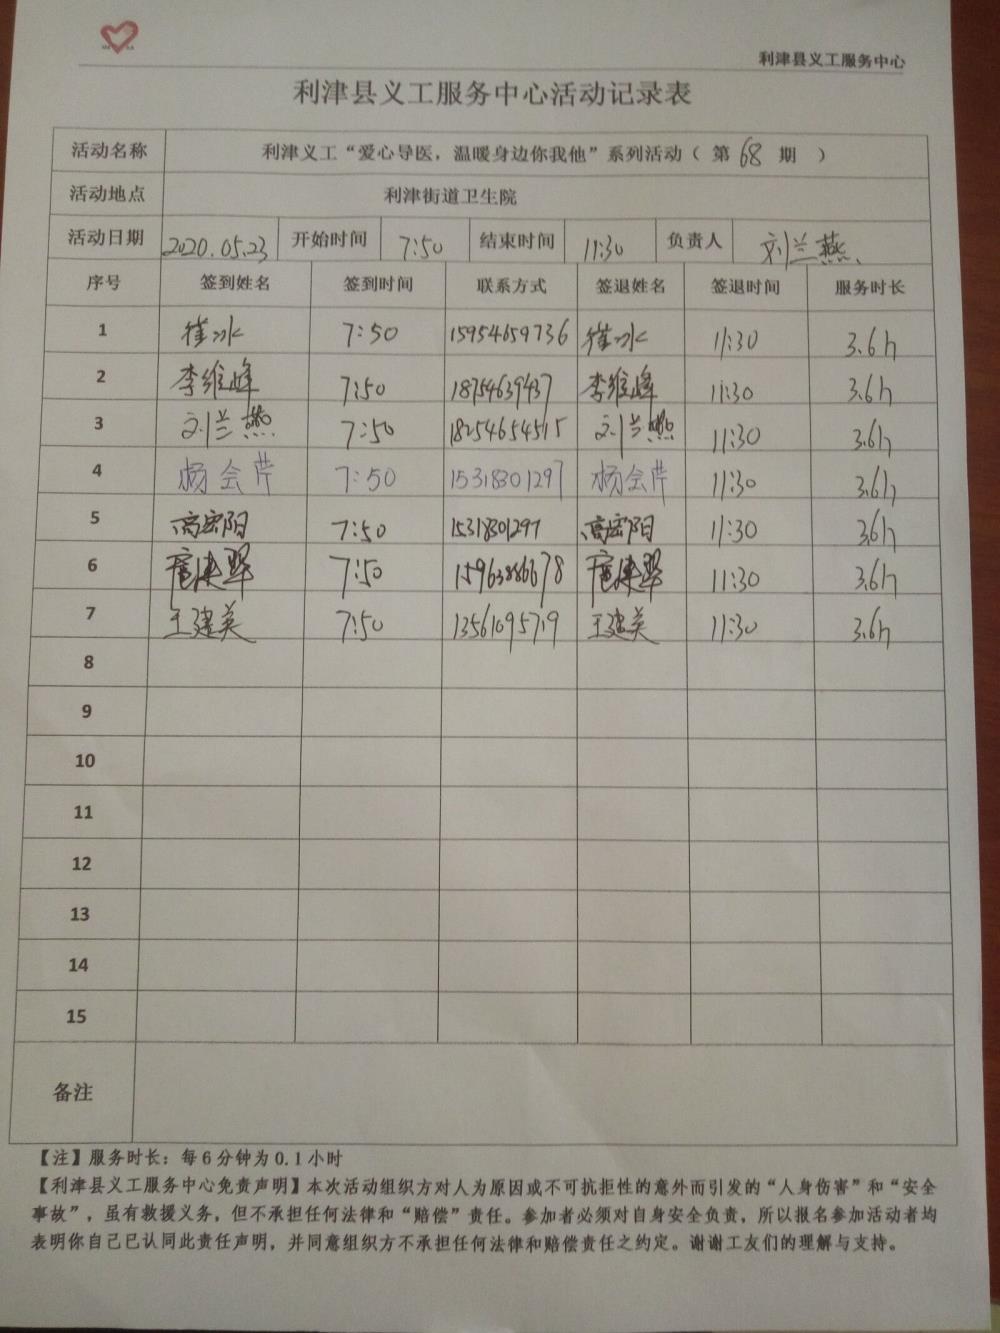 利津县义工服务中心
利津县义工服务中心活动记录表
活动名称 利津义工“爱心导医，温暖身边你我他”系列活动（ 第 68 期 ）
活动地点 利津街道卫生院
活动日期 2020.05.23 开始时间 7:50 结束时间 11:30 负责人 刘兰燕
序号 签到姓名 签到时间 联系方式 签退姓名 签退时间 服务时长
1 崔冰 7:50 15954659736 崔冰 11:30 3.6h
2 李维峰 7:50 18754639437 李维峰 11:30 3.6h
3 刘兰燕 7:50 18254654515 刘兰燕 11:30 3.6h
4 杨会芹 7:50 15318301297 杨会芹 11:30 3.6h
5 高宏阳 7:50 15318301297 高宏阳 11:30 3.6h
6 7:50 15963886678 11:30 3.6h
7 王建美 7:50 13561095719 王建美 11:30 3.6h
8
9
10
11
12
13
14
15
备注
【注】服务时长：每6分钟为0.1小时
【利津县义工服务中心免责声明】本次活动组织方对人为原因或不可抗拒性的意外而引发的“人身伤害”和“安全
事故”，虽有救援义务，但不承担任何法律和“赔偿”责任。参加者必须对自身安全负责，所以报名参加活动者均
表明你自己已认同此责任声明，并同意组织方不承担任何法律和赔偿责任之约定。谢谢工友们的理解与支持。